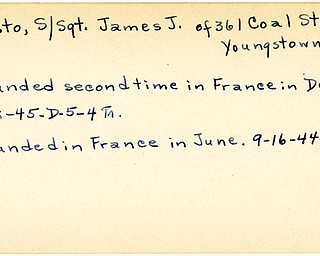 sto, S/Sgt. James J. of 361 Coal St
Youngstown
unded second time in France in D
-45-D-5-4 Tr.
unded in France in June. 9-16-44